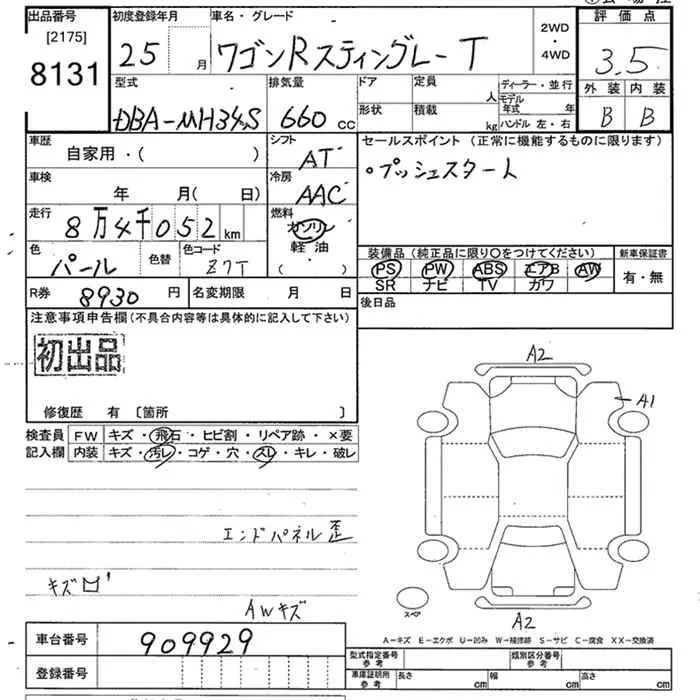 出品番号 初度登録年月 車名・グレード 2WD ・ 4WD 評価点
[2175]
8131
25 月 ワゴンRスティングレーT 3.5
型式 排気量 ドア 定員 人 ディーラー・並行 外装 内装
DBA-MH34S 660 cc 形状 積載 kg モデル年式 年 ハンドル 左・右 B B
車歴 シフト セールスポイント(正常に機能するものに限ります)
自家用・( ) AT
・プッシュスタート
車検 冷房
年 月( 日) AAC
走行 燃料
8万4千052km ガソリン
軽油
・
( )
色 色替 色コード 装備品(純正品に限り○をつけてください) 新車保証書
パール Z7T PS PW ABS エアB AW 有・無
SR ナビ TV カワ
R券 8930 円 名変期限 月 日 後日品
注意事項申告欄(不具合内容等は具体的に記入して下さい)
初出品
修復歴 有 〔箇所 〕
検査員 FW キズ・飛石・ヒビ割・リペア跡・×要
記入欄 内装 キズ・汚レ・コゲ・穴・スレ・キレ・破レ
エンドパネル歪
キズ
AWキズ
A2
A1
スペア
A2
A-キズ E-エクボ U-凹み W-補修跡 S-サビ C-腐食 XX-交換済
車台番号 909929
登録番号
型式指定番号 参考 類別区分番号 参考
車庫証明用 参考 長さ cm 幅 cm 高さ cm